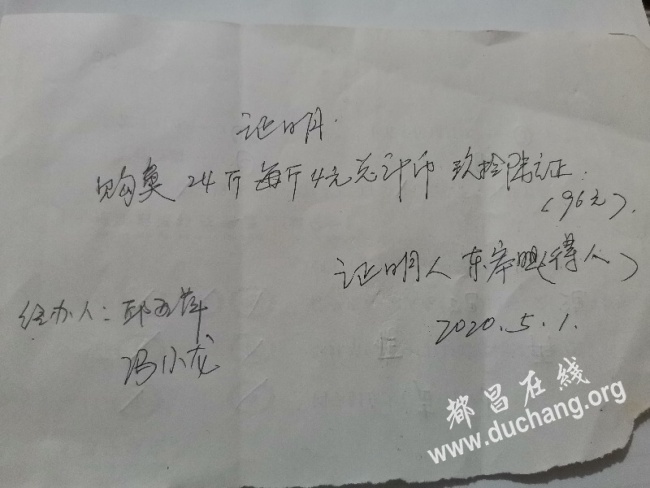 证明.
购鱼24斤每斤4元总计币玖拾陆证.
(96元).
证明人 东岸 (得人)
2020.5.1.
经办人:邱
冯小龙
都昌在线
www.duchang.org